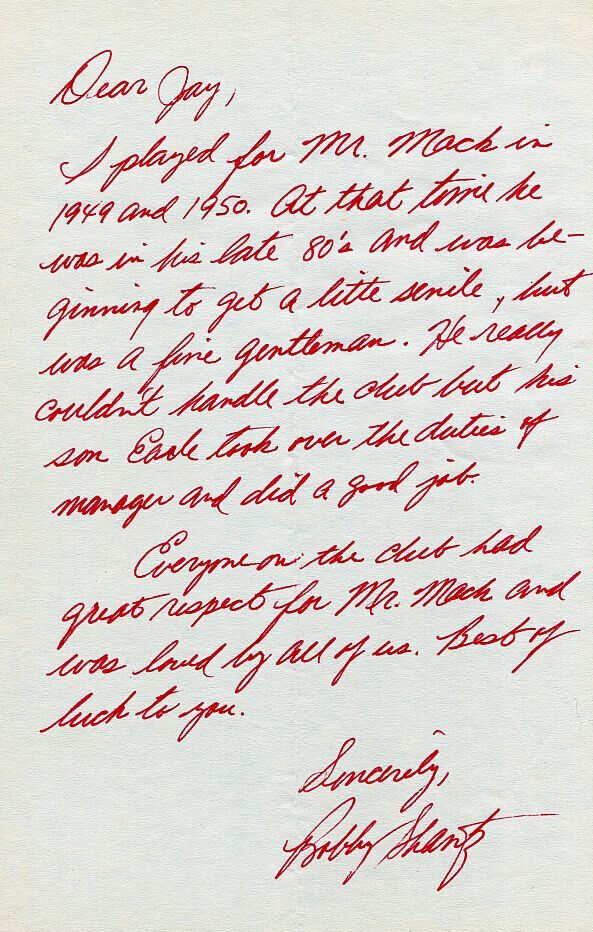 Dear Jay,
I played for Mr. Mack in
1949 and 1950. At that time he
was in his late 80's and was be-
ginning to get a little senile, but
was a fine gentleman. He really
couldn't handle the club but his
son Earle took over the duties of
manager and did a good job.
Everyone on the club had
great respect for Mr. Mack and
was loved by all of us. Best of
luck to you.
Sincerely,
Bobby Shantz